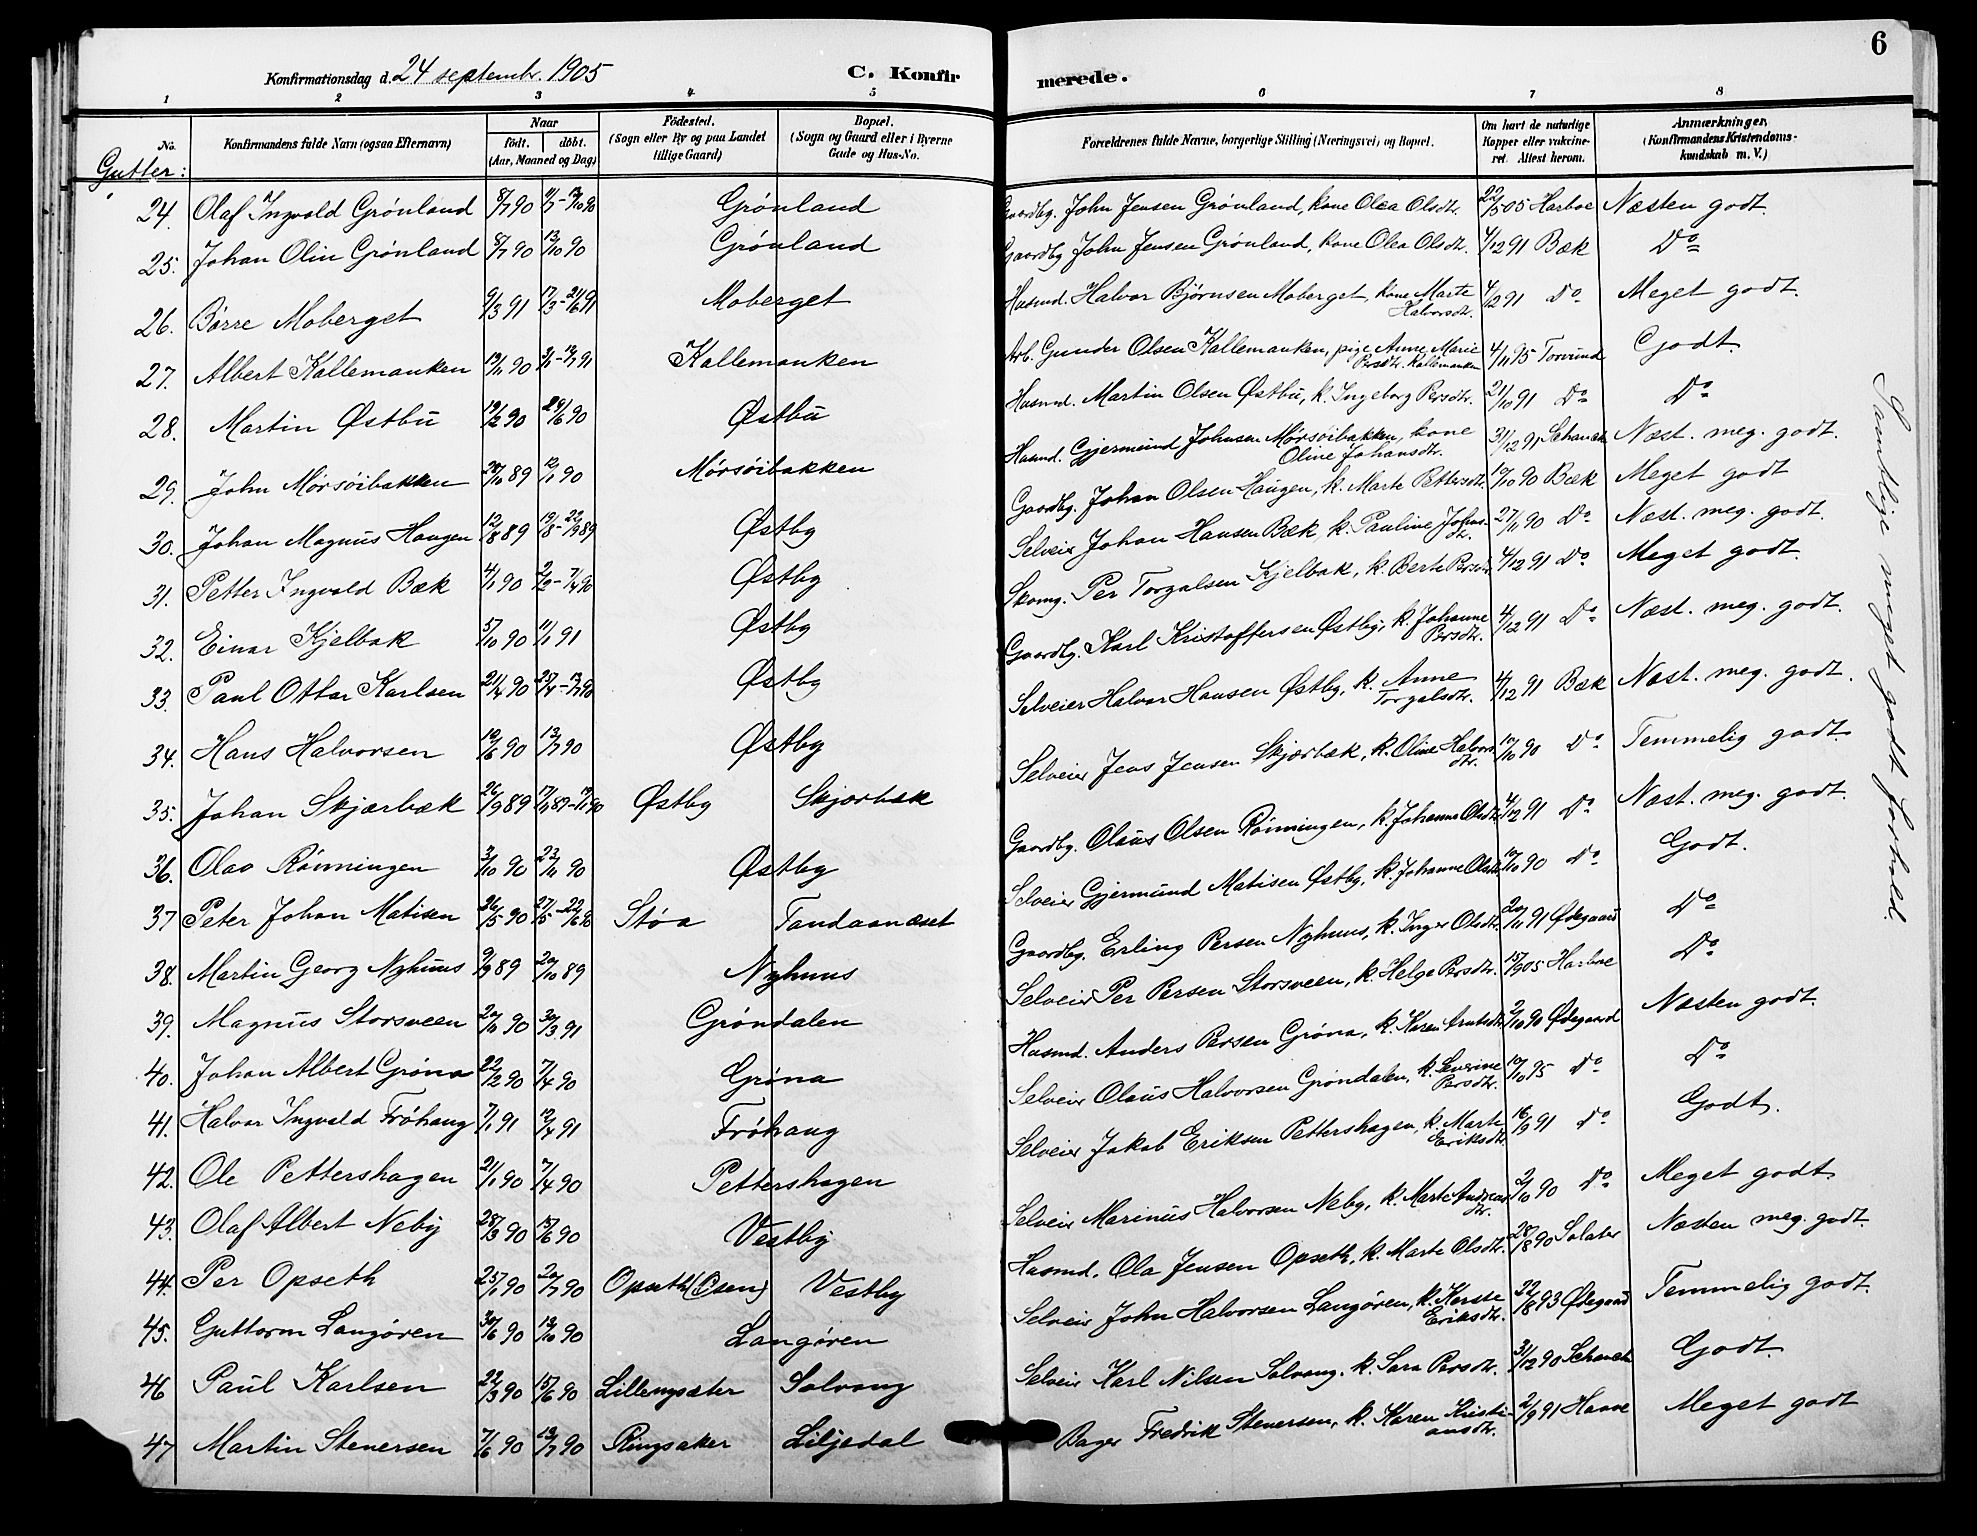 6
Konfirmationsdag d. 24 septembr. 1905
C. Konfirmerede.
1 2 3 4 5 6 7 8
No.
Konfirmandens fulde Navn (ogsaa Efternavn)
Naar
født. døbt.
(Aar, Maaned og Dag)
Fødested.
(Sogn eller By og paa Landet
tillige Gaard)
Bopæl.
(Sogn og Gaard eller i Byerne
Gade og Hus-No.
Forældrenes fulde Navne, borgerlige Stilling (Næringsvei) og Bopæl.
Om havt de naturlige
Kopper eller vakcine-
ret. Attest herom.
Anmærkninger,
(Konfirmandens Kristendoms-
kundskab m. V.)
Gutter:
24. Olaf Ingvald Grönland 8/7 90 Grönland Gaardbg. John Jensen Grönland, kone Olea Olsdtr. 22/5 05 Harboe Næsten godt.
25. Johan Olin Grönland 8/7 90 13/10 90 Grönland Gaardbg John Jensen Grönland, kone Olea Olsdtr. 4/12 91 Bæk Do
26. Börre Moberget 9/3 91 17/3-21/6 91 Moberget Husmd. Halvor Björnsen Moberget, kone Marte Halvorsdtr. 4/12 91 Do Meget godt.
27. Albert Kallemanken 90 91 Kallemanken Arb. Gunder Olsen Kallemanken, pige Anne Marie Persdtr. Kallemanken 4/11 95 Torvund Godt.
28. Martin Østbu 19/2 90 29/6 90 Østbu Husmd. Martin Olsen Østbu, k. Ingeborg Persdtr. 21/10 91 Do Do
29. John Mörsöibakken 89 12/1 90 Mörsöibakken Husmd. Gjermund Johnsen Mörsöibakken, kone Oline Johansdtr. 31/12 91 Schanch Næst. meg. godt.
30. Johan Magnus Haugen 12/8 89 19/8-22/9 89 Østby Gaardbg. Johan Olsen Haugen, k. Marte Pettersdtr. 10/10 90 Bæk Meget godt
31. Petter Ingvald Bæk 4/1 90 2/2-7/4 90 Østby Selveier Johan Hansen Bæk k. Pauline Johnsdtr. 27/11 90 Do Næst. meg. godt.
32. Einar Kjelbak 5/10 90 11/1 91 Østby Skomg. Per Torgalsen Kjelbak, k. Berte Persdtr. 4/12 91 Do Meget godt.
33. Paul Ottar Karlsen 21/4 90 25/4-13/7 90 Østby Gaardbg. Karl Kristoffersen Østby, k. Johanne Persdtr. 4/12 91 Do Næst. meg. godt.
34. Hans Halvorsen 10/6 90 13/7 90 Østby Selveier Halvor Hansen Østby, k. Anne Torgalsdtr. 4/12 91 Bæk Næst. meg. godt.
35. Johan Skjærbæk 26/9 89 Østby Skjærbæk Selveier Jens Jensen Skjærbæk, k. Oline Halvorsdtr. 10/10 90 Do Temmelig godt.
36. Olav Rönningen 3/10 90 23/11 90 Østby Gaardbg. Olaus Olsen Rönningen, k. Johanne Olsdtr. 4/12 91 Do Næst. meg. godt.
37 Peter Johan Matisen 26/5 90 27/5-22/6 90 Støa Tandaanæset Selveier Gjermund Matisen Østby, k. Johanne Olsdtr. 10/10 90 Do Godt.
38. Martin Georg Nyhuus 9/9 89 20/10 89 Nyhuus Gaardbg. Erling Persen Nyhuus, k. Inger Olsdtr. 20/11 91 Ødegaard Do
39. Magnus Storsveen 20/11 90 30/3 91 Gröndalen Selveier Per Persen Storsveen, k. Helge Persdtr. 15/9 05 Harboe Do
40. Johan Albert Gröna 22/2 90 7/4 90 Gröna Husmd. Anders Persen Gröna, k. Karen Arntsdtr. 2/10 90 Ødegaard Næsten godt.
41. Halvor Ingvald Fröhaug 7/1 91 12/4 91 Fröhaug Selveier Olaus Halvorsen Gröndalen, k. Severine Persdtr. 10/10 95 Do Do
42. Ole Pettershagen 21/1 90 7/4 90 Pettershagen Selveier Jakob Eriksen Pettershagen, k. Marte Eriksdtr. 16/9 91 Do Godt.
43. Olaf Albert Neby 28/3 90 15/6 90 Vestby Selveier Marinus Halvorsen Neby, k. Marte Andreasdtr. 2/10 90 Do Meget godt.
44. Per Opseth 25/1 90 20/7 90 Opseth (Osen) Vestby Husmd. Ola Jensen Opseth, k. Marte Olsdtr. 28/8 90 Solater Næsten meg. godt.
45. Guttorm Langören 30/6 90 12/10 90 Langören Selveier John Halvorsen Langören, k. Kerste Eriksdtr. 22/8 93 Ødegaard Temmelig godt.
46 Paul Karlsen 22/3 90 15/6 90 Lillengsæter Solvang Selveier Karl Nilsen Solvang. k. Sara Persdtr. 31/12 90 Schanch Godt.
47 Martin Stenersen 7/6 90 13/7 90 Ringsaker Liljedal Bager Fredrik Stenersen, k. Karen Kristiansdtr. 2/9 91 Meget godt
Samtlige meget godt forhold.